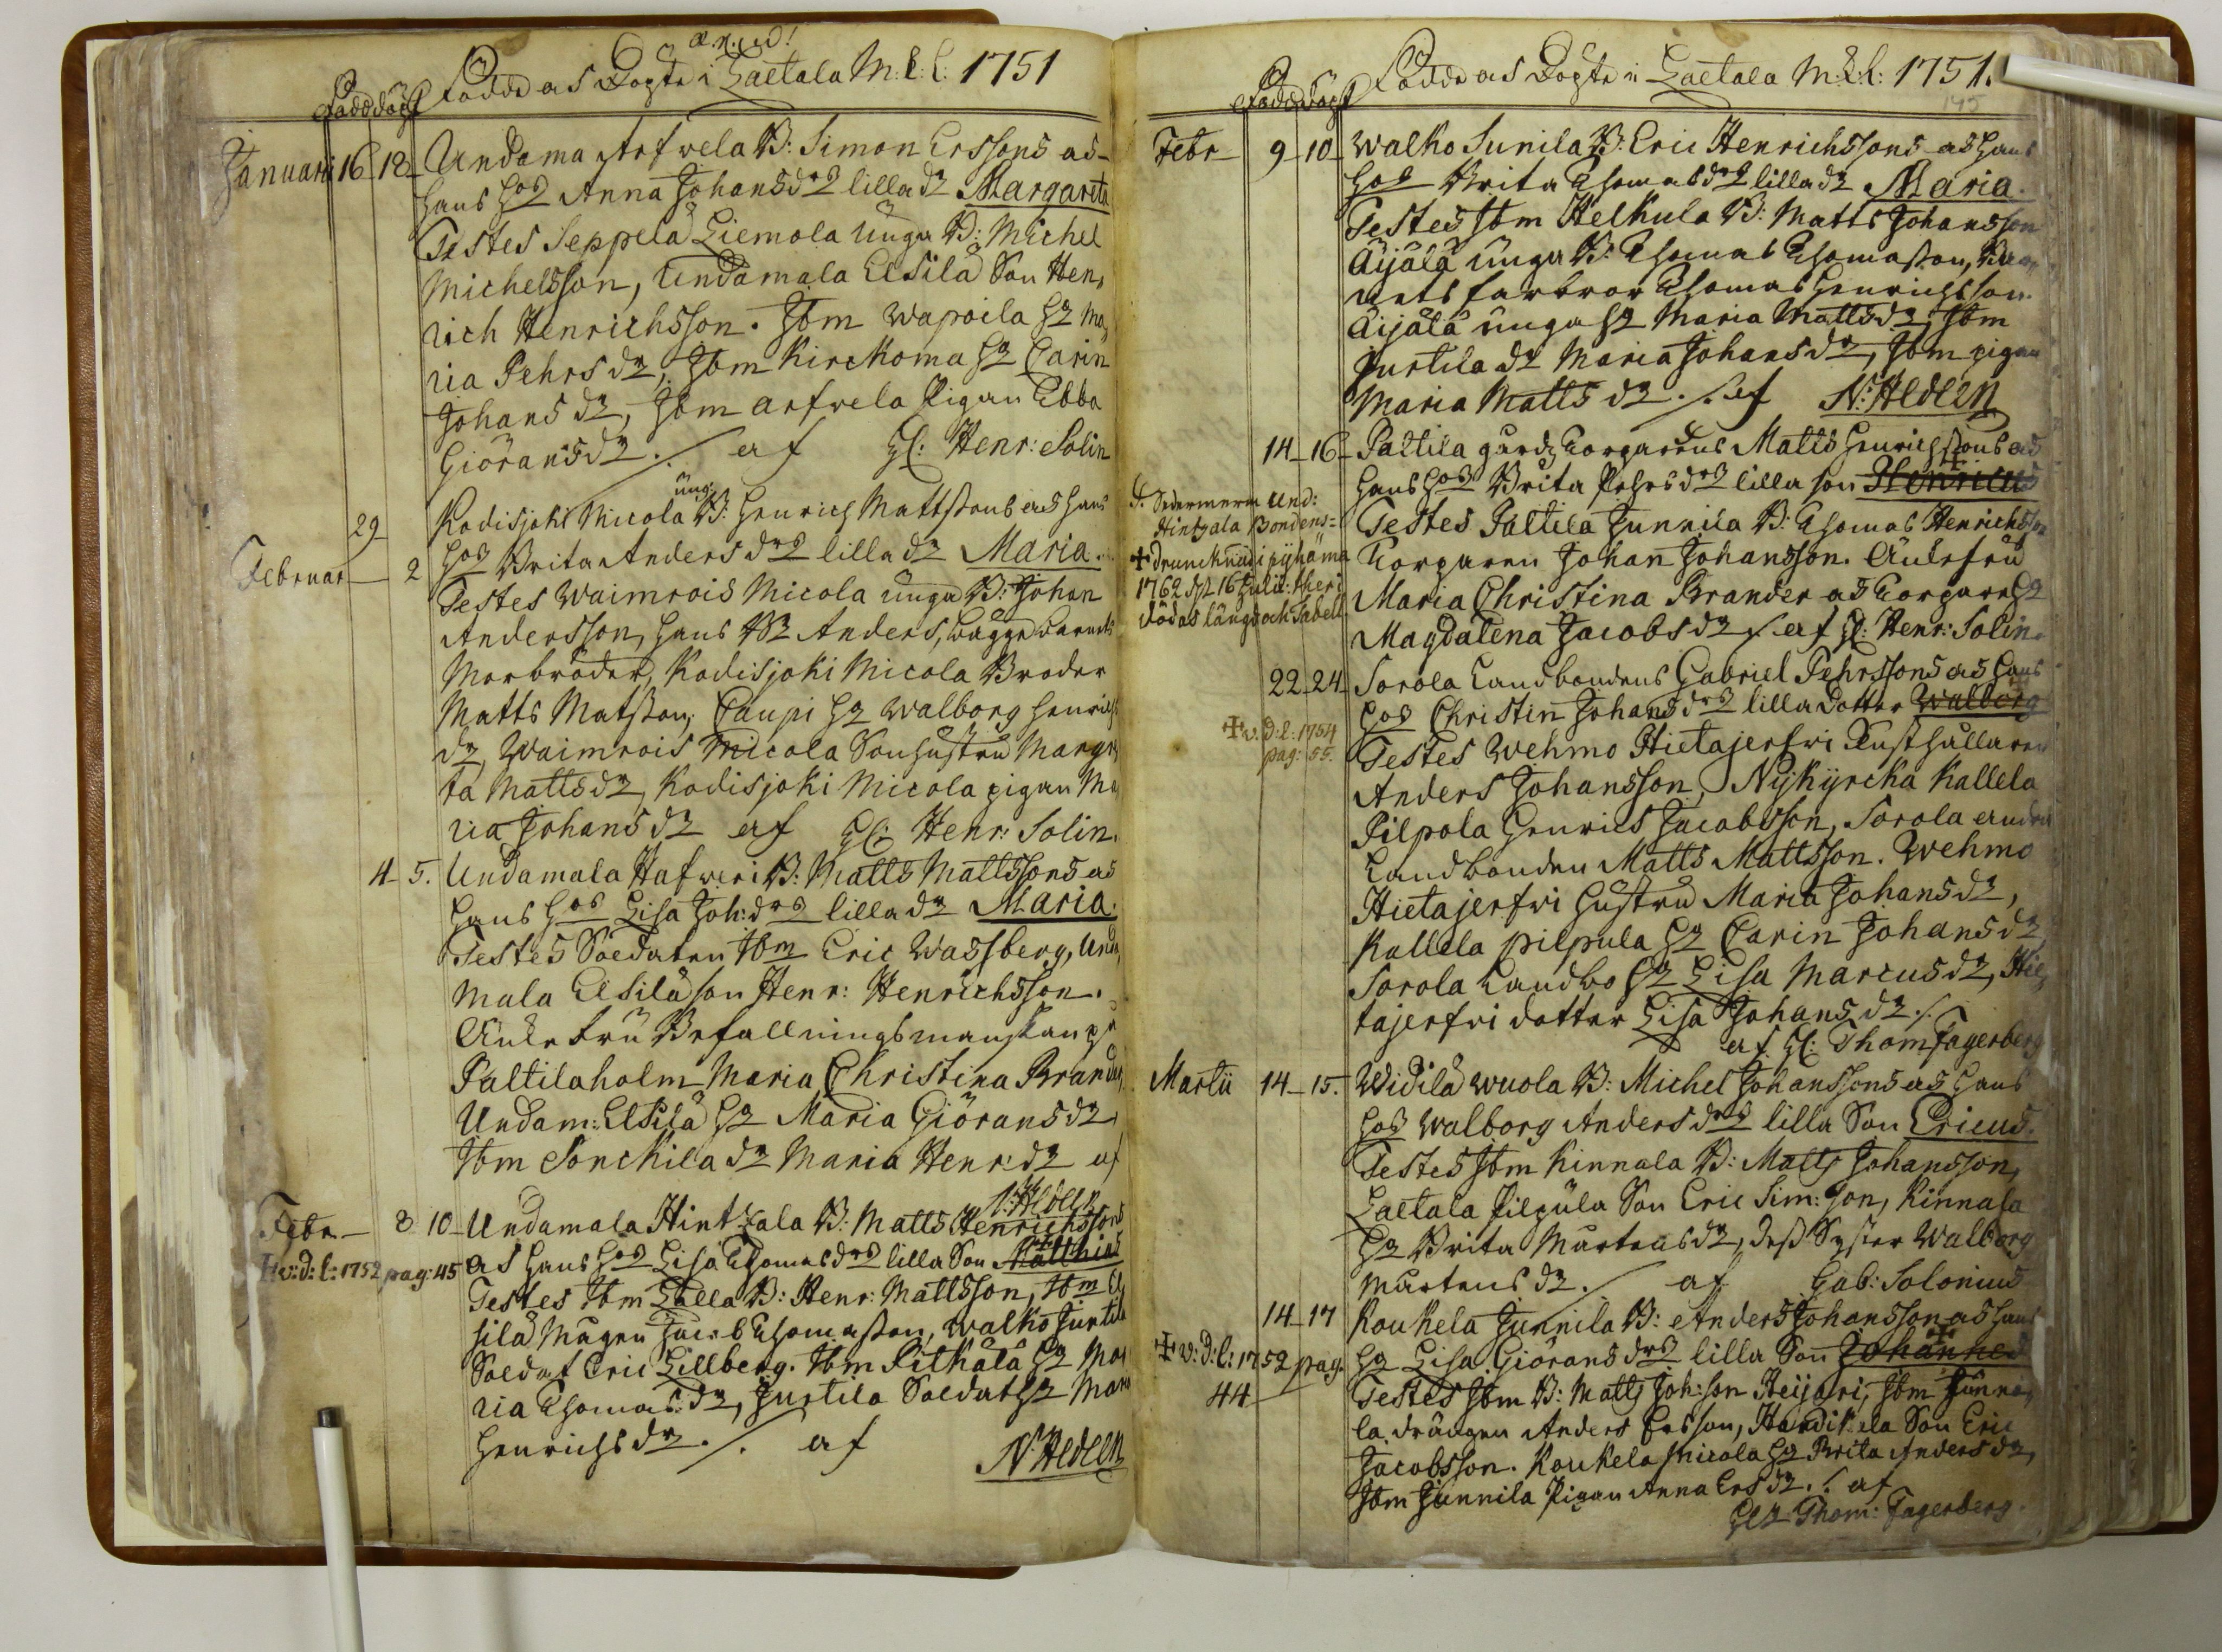 Födde och Döpte i Laetala M: C: l: 1751
Född döpt
Januarii 16 18 Undama Arfwela B: Simon Erssons och
hans hos Anna Johansdrs lilla dr Margareta
Testes Seppelä Liemola unga B: Michel
Michelsson, Undamala Elsilä Son Hen,
rich Henrichsson. Ibm Wapoila hr Ma,
ria Pehrsdr, Ibm Kirckoma hr Carin
Johansdr, Ibm Arfvela Pigan Ebba
Giöransdr ./. af Hl: Henr: Solin
ung:
29 Kodisjoki Nicola B: Henrich Mattssons och hans
Februar 2 hos Brita Andersdrs lilla dr Maria.
Testes Waimrois Nicola unga B: Johan
Andersson, hans Br Anders, bägge barnets
Morbröder, Kodisjoki Nicola Broder
Matts Matsson, Caupi hr Walborg Henrichs
dr, Waimrois Nicola Sonhustru Marga
ta Mattsdr, Kodisjoki Nicola pigan Ma
ria Johansdr af Hl: Henr: Solin.
4 5. Undamala Hafweri B: Matts Mattssons och
hans hos Lisa Joh:drs lilla dr Maria.
Testes Soldaten Ibm Eric Wassberg, Unda,
mala Elsilä son Henr: Henrichsson.
Änke fru Befallningsmanskan på
Paltilaholm Maria Christina Brander,
Undam: Elsilä hr Maria Giöransdr
Ibm Sonckila dr Maria Henr:dr af
N: Hedeen
Febr. 8 10 Undamala Hintzala B: Matts Henrichssons
✝ v: d: l: 1752 pag: 45 och hans hos Lisa Thomasdrs lilla Son Matthias
Testes Ibm Lalla B: Henr: Mattsson, Ibm El
silä Mågen Jacob Thomasson, Walko Juntila
Soldat Eric Lillberg. Ibm Pitkälä hr Ma
ria Thomasdr, Juntila Soldat hr Maria
Henrichsdr ./. af N: Hedeen
Födde och Döpte i Laetala M: C: l: 1751.
195
Född döpt
Febr 9 10 Walko Sunila B: Eric Henrichssons och hans
hos Brita Thomasdrs lilla dr Maria.
Testes Ibm Helkula B: Matts Johansson
Äijälä unga B: Thomas Thomasson, Bar,
nets farbror Thomas Henrichsson.
Äijälä unga hr Maria Mattsdr, Ibm
Juntila dr Maria Johansdr, Ibm pigan
Maria Mattsdr ./. af N: Hedeen
14 16 Paltila gårdz Torparens Matts Henrichssons och
hans hos Brita Pehrsdrs lilla son Henricus
d. Sedermera Und:
Hintzala Bondens
✝ drunknad i Pyhäma
1762 d 16 Julii: the i
dödas längd och Tabell
Testes Paltila Junnila B: Thomas Henrichsson
Torparen Johan Johansson. Änkefru
Maria Christina Brander och Torpare hr
Magdalena Jacobsdr ./. af Hl: Henr: Solin.
22 24 Sorola Landbondens Gabriel Pehrssons och hans
hos Christin Johansdrs lilla Dotter Walborg
✝ v: d: l: 1754
pag: 55.
Testes Wehmo Hietajerfwi Rusthållaren
Anders Johansson, Nykyrcka Kallela
Pilpola Henrics Jacobsson, Sorola andra
Landbonden Matts Mattsson. Wehmo
Hietajerfwi hustru Maria Johansdr,
Kallela pilpula hr Carin Johansdr
Sorola Landbo hr Lisa Marcusdr, Hie,
tajerfwi dotter Lisa Johansdr ./.
af Hl: Thom Fagerberg
Martii 14 15. Widilä Wuola B: Michel Johanssons och hans
hos Walborg Andersdrs lilla Son Ericus.
Testes Ibm Kinnala B: Matts Johansson,
Laetala Pilpula Son Eric Sim:son, Kinnala
hr Brita Mårtensdr, dess Syster Walborg
Mårtensdr ./. af Gab: Solonius
14 17 Koukela Junnila B: Anders Johansson och hans
✝ v: d: l: 1752 pag.
44
hr Lisa Giöransdrs lilla Son Johannes
Testes Ibm B: Matts Joh:son Heijari, Ibm Junni,
la drängen Anders Ersson, Handikela Son Eric
Jacobsson. Koukela Nicola hr Brita Andersdr,
Ibm Junnila Pigan Anna Ersdr ./. af
Hl: Thom: Fagerberg.